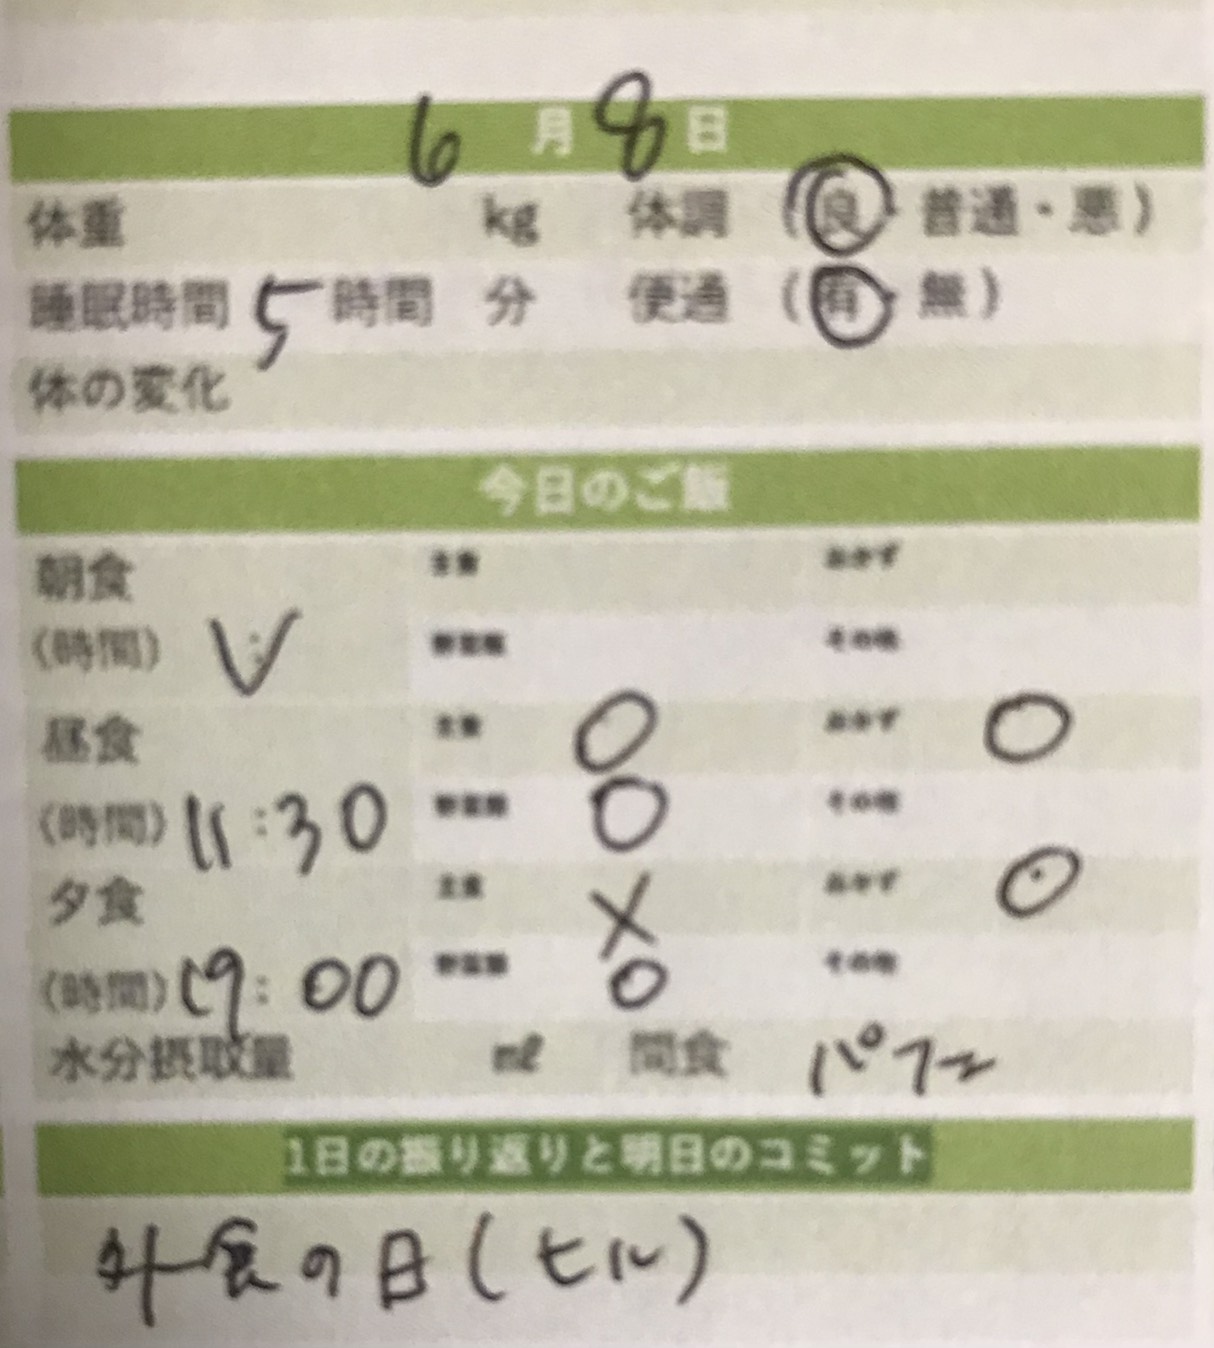 6月8日
体重 kg 体調 (良・普通・悪)
睡眠時間 5時間 分 便通 (有・無)
体の変化
今日のご飯
朝食 主食 おかず
(時間) : 野菜類 その他
昼食 主食 ○ おかず ○
(時間) 11:30 野菜類 ○ その他
夕食 主食 × おかず ○
(時間) 19:00 野菜類 ○ その他
水分摂取量 ml 間食 パフェ
1日の振り返りと明日のコミット
外食の日(ヒル)